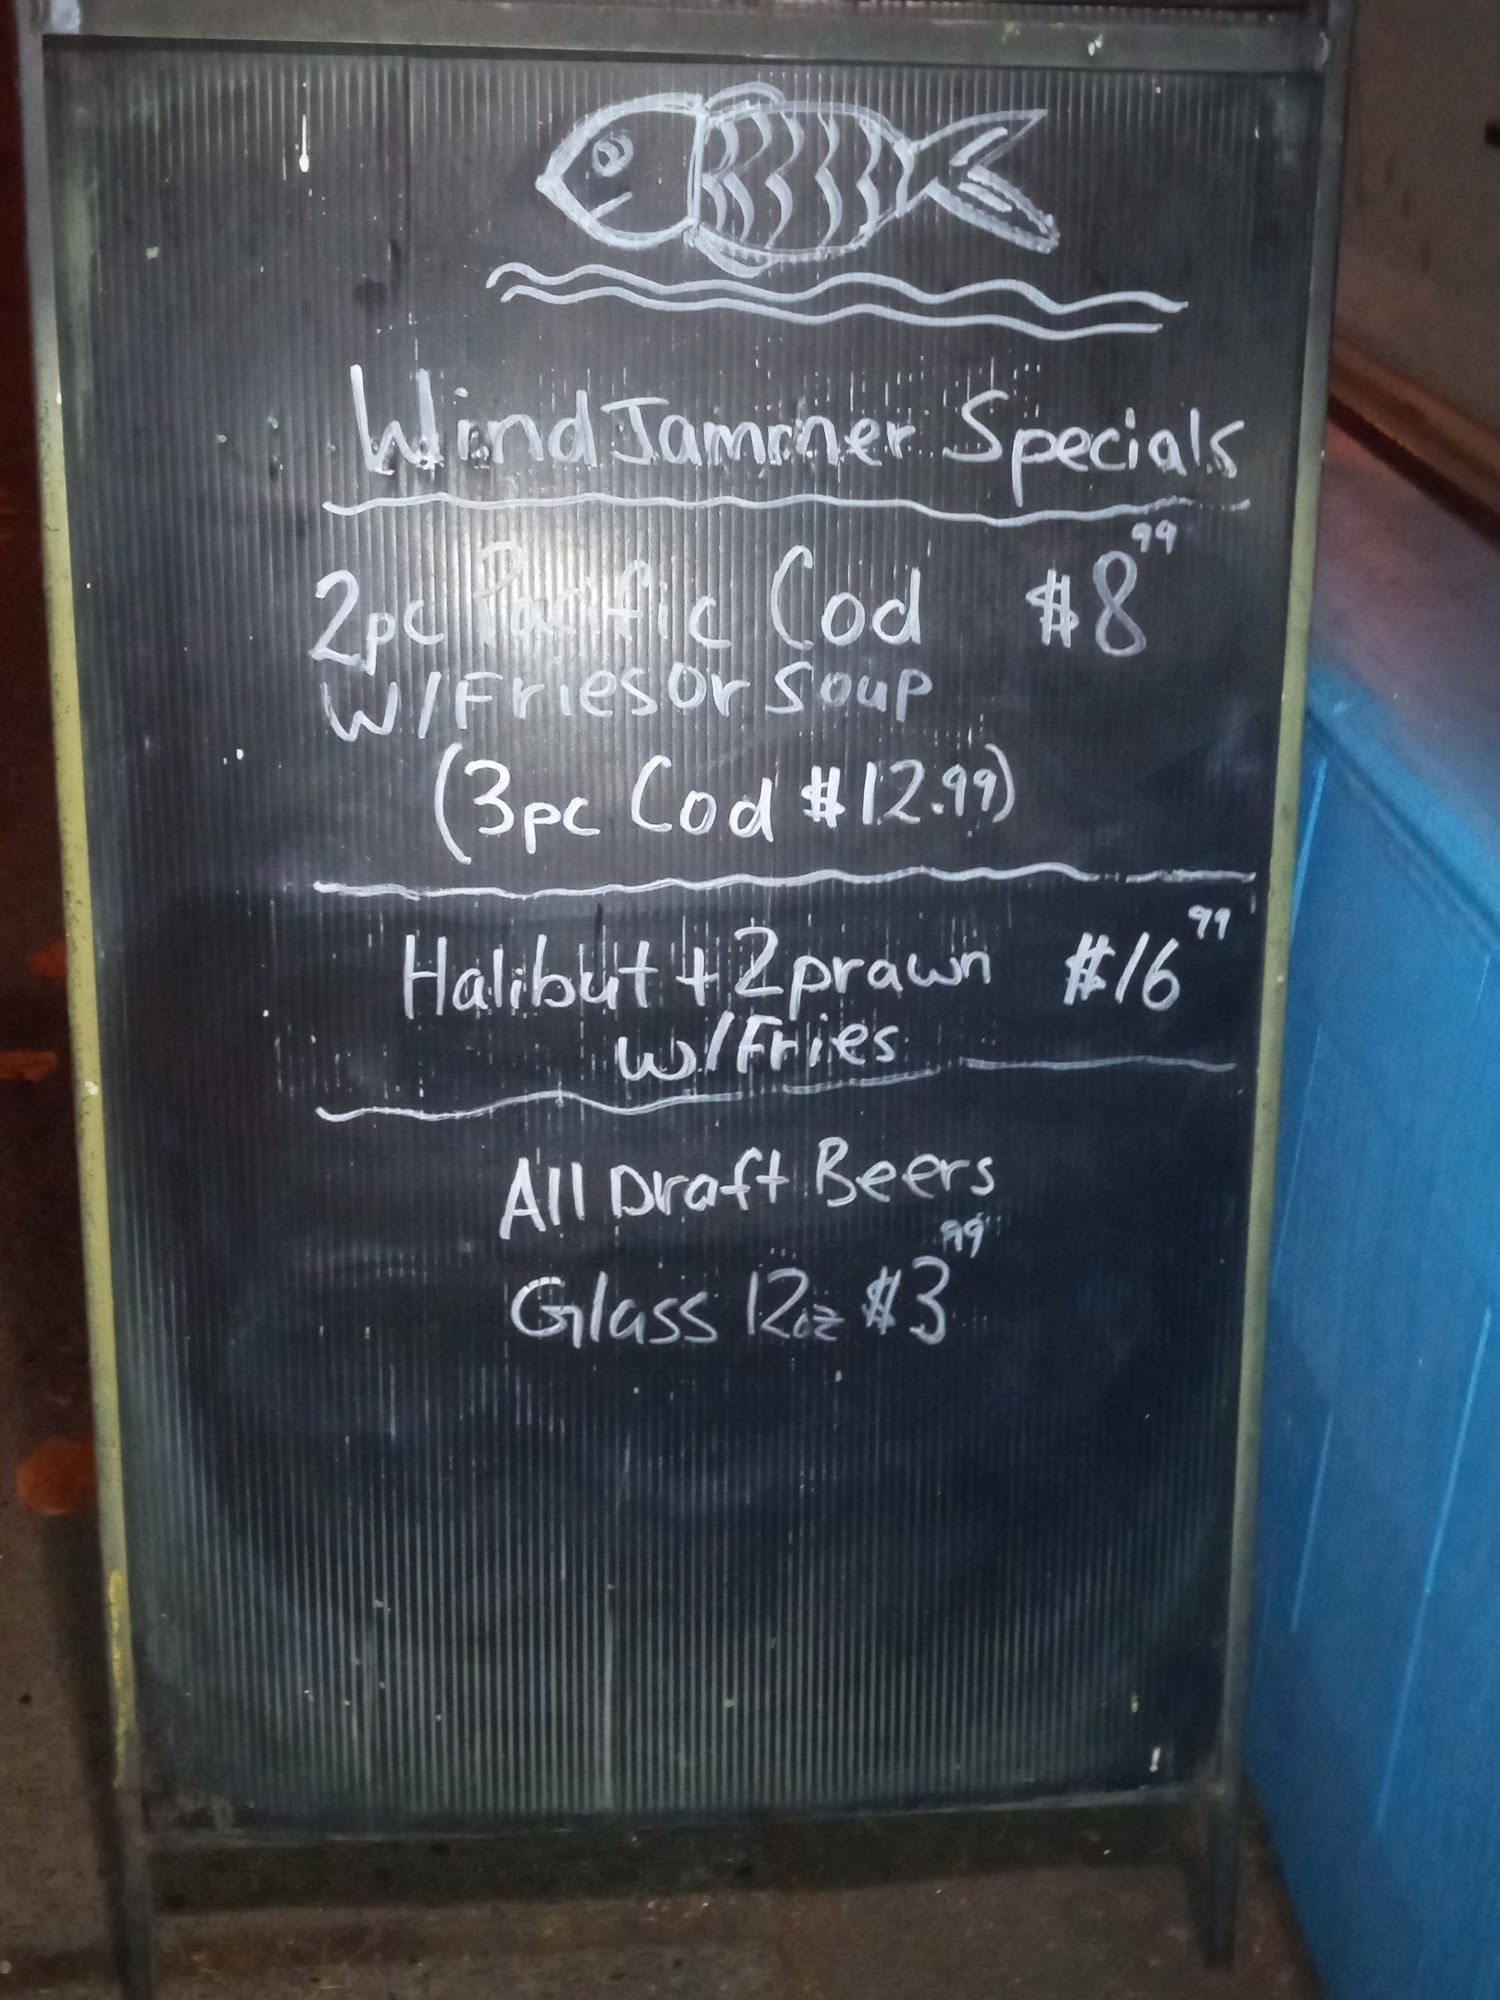 WindJammer Specials
2pc Pacific Cod $8⁹⁹
W/Fries or Soup
(3pc Cod $12.99)
Halibut + 2 prawn $16⁹⁹
w/Fries
All Draft Beers
Glass 12oz $3⁹⁹